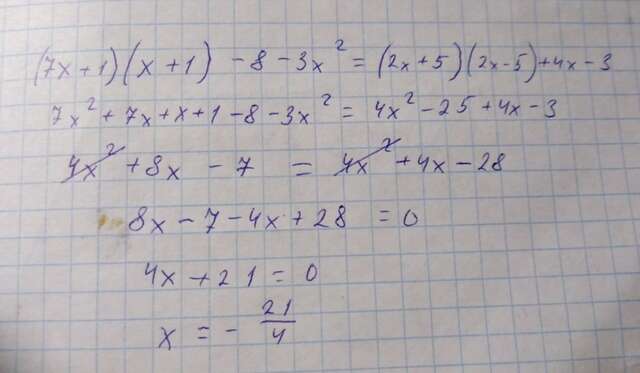 (7x+1)(x+1) -8-3x² = (2x+5)(2x-5)+4x-3
7x²+7x+x+1-8-3x² = 4x²-25+4x-3
4x²+8x-7 = 4x²+4x-28
8x-7-4x+28=0
4x+21=0
x=-21/4